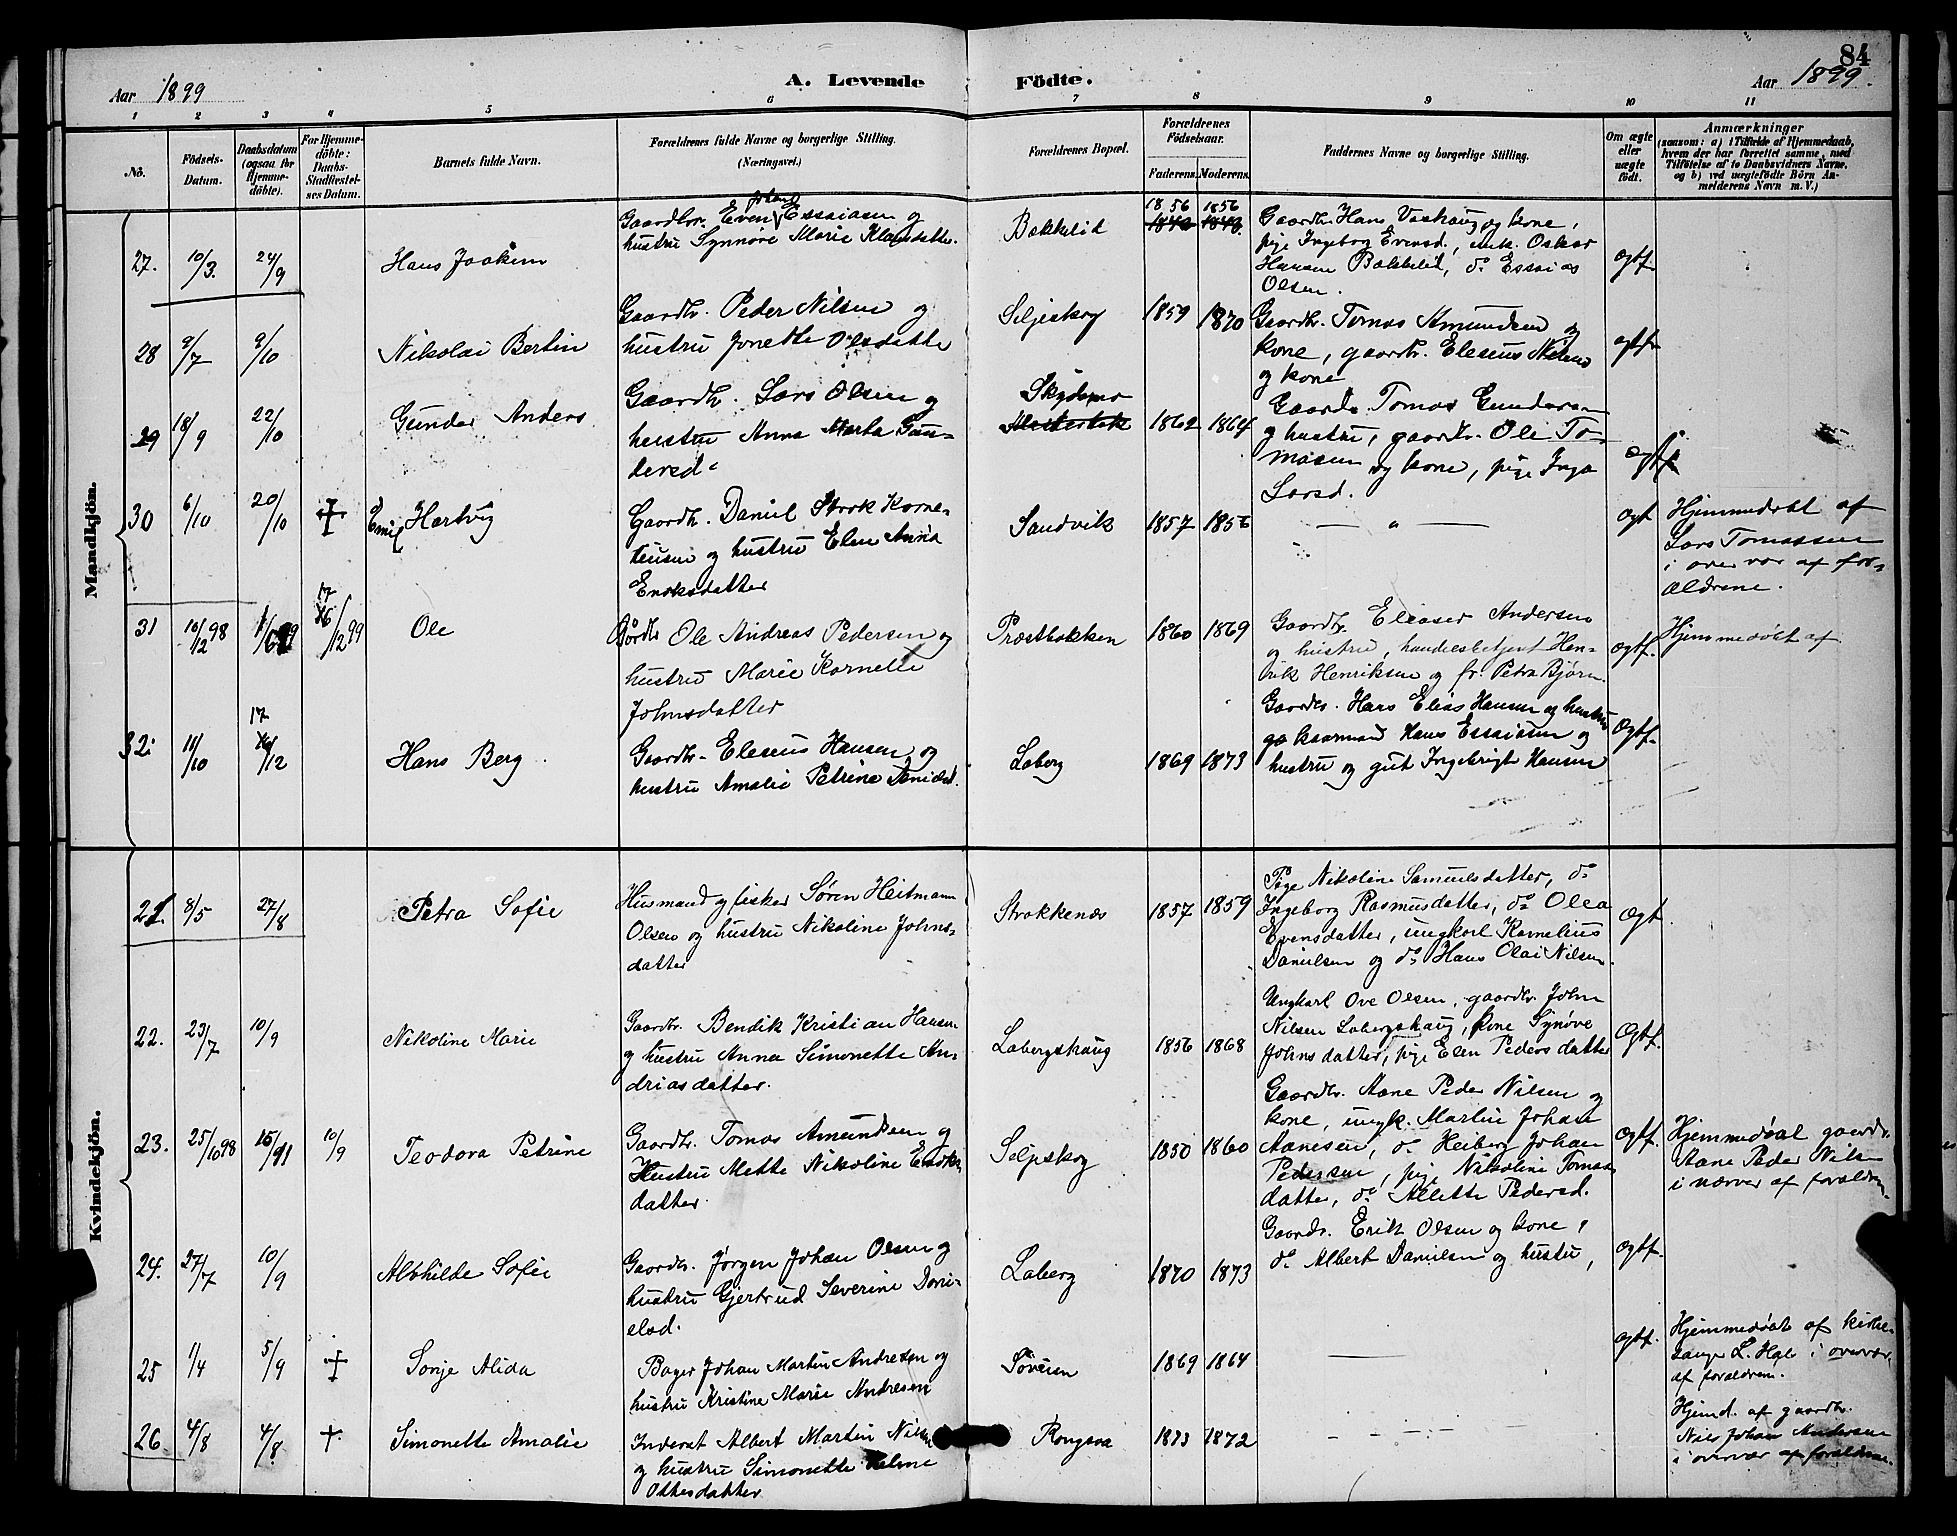 84
Aar 1899
A. Levende Födte.
Aar 1899.
1 2 3 4 5 6 7 8 9 10 11
No.
Födsels-
Datum.
Daabsdatum
(ogsaa for
Hjemme-
döbte).
For Hjemme-
döbte:
Daabs-
Stadfæstel-
ses Datum.
Barnets fulde Navn.
Forældrenes fulde Navne og borgerlige Stilling.
(Næringsvei.)
Forældrenes Bopæl.
Forældrenes
Födselsaar.
Faderens. Moderens.
Faddernes Navne og borgerlige Stilling.
Om ægte
eller
uægte
födt.
Anmærkninger
(saasom: a) i Tilfælde af Hjemmedaab,
hvem der har forrettet samme, med
Tilföielse af to Daabsvidners Navne,
og b) ved uægtefödte Börn An-
melderens Navn m. V.)
Mandkjön.
27. 10/3. 24/9
Hans Joakim
Gaardbr. Even Johan Essaiasen og
hustru Synnøve Marie Klausdatter.
Bakkelid
1856 1856
1846 1848.
Gaardb. Hans Vaskaug og kone,
pige Ingeborg Evensd., unk. Oskar
Hansen Bakkelid, do Essaias
Olsen.
ægtf.
28 9/7 9/10
Nikolai Bertin
Gaardb. Peder Nilsen og
hustru Jonette Olsdatter
Seljeskog
1859 1870
Gaardb. Tomas Amundsen og
kone, gaardb. Eleseus Nilsen
og kone
ægtf.
29 18/9 22/10
Gunder Anders
Gaardb. Lars Olsen og
hustru Anna Marta Gun-
dersd.
1862 1864
Gaardb. Tomas Gundersen
og hustru, gaardb. Ole To-
masen og kone, pige Inga
Larsd.
ægtf.
30 6/10 20/10 +
Emil Hartvig
Gaardb. Daniel Strok Korne-
liusen og hustru Elen Anna
Enoksdatter
Sandvik
1857 1856
— " —
ægt
Hjemmedøbt af
Lars Tomassen
i overvær af for-
ældrene.
31 10/12 98 1/6 99 17 16/12 99
Ole
Gårdb Ole Andreas Pedersen og
hustru Marie Kornelie
Johnsdatter
Præstbakken
1860 1869
Gaardb. Eleaser Andersen
og hustru, handelsbetjent Hen-
rik Henriksen og fr. Petra Bjørn.
ægtf.
Hjemmedøbt af
32. 11/10 17 16/12
Hans Berg
Gaardb. Eleseus Hansen og
hustru Amalie Petrine Danielsd.
Laberg
1869 1873
Gaardb. Hans Elias Hansen og hustru
og kaarmand Hans Essaiasen og
hustru og gut Ingebrigt Hansen
ægtf.
Kvindekjön.
21. 8/5 27/8
Petra Sofie
Husmand og fisker Søren Heitmann
Olsen og hustru Nikoline Johns-
datter
Strokkenæs
1857 1859
Pige Nikoline Samuelsdatter, do
Ingeborg Rasmusdatter, do Olea
Evensdatter, ungkarl Kornelius
Danielsen og do Hans Olai Nilsen.
ægt.
22. 23/7 10/9
Nikoline Marie
Gaardbr. Bendik Kristian Hansen
og hustru Anna Simonette An-
driasdatter.
Labergskaug
1856 1868
Ungkarl Ove Olsen, gaardbr. John
Nilsen Labergskaug, kone Synøve
Johnsdatter, pige Elen Pedersdatter
ægtf.
23. 25/10 98 15/11 10/9
Teodora Petrine
Gaardb. Tomas Amundsen og
Hustru Mette Nikoline Enoks-
datter.
Seljeskog
1850 1860
Gaardb. Aane Peder Nilsen og
kone, ungk. Martin Johan
Aanesen, do Heiberg Johan
Pedersen, pige Nikoline Tomas-
datter, do Alette Pedersd.
ægtf.
Hjemmedøbt gaardb.
Aane Peder Nilsen
i nærvær af forældren.
24. 27/7 10/9
Alvhilde Sofie
Gaardb. Jørgen Johan Olsen og
hustru Gjertrud Severine Dani-
elsd.
Laberg
1870 1873
Gaardb. Erik Olsen og kone,
do Albert Danielsen og hustru,
ægtf.
25 1/4 5/9 +
Sonje Alida
Bager Johan Martin Andresen og
hustru Kristine Marie Andresen
Søveien
1869 1864
—
ægtf.
Hjemmedøbt af kirke-
sanger L. Hals i overvær
af forældrene.
26 4/8 4/8 +
Simonette Amalie
Inderst Albert Martin Nilsen
og hustru Simonette Palme
Ottesdatter
1873 1872
— — — —
Hjemd. af gaardbr.
Nils Johan Andersen
i overvær af forældrene.